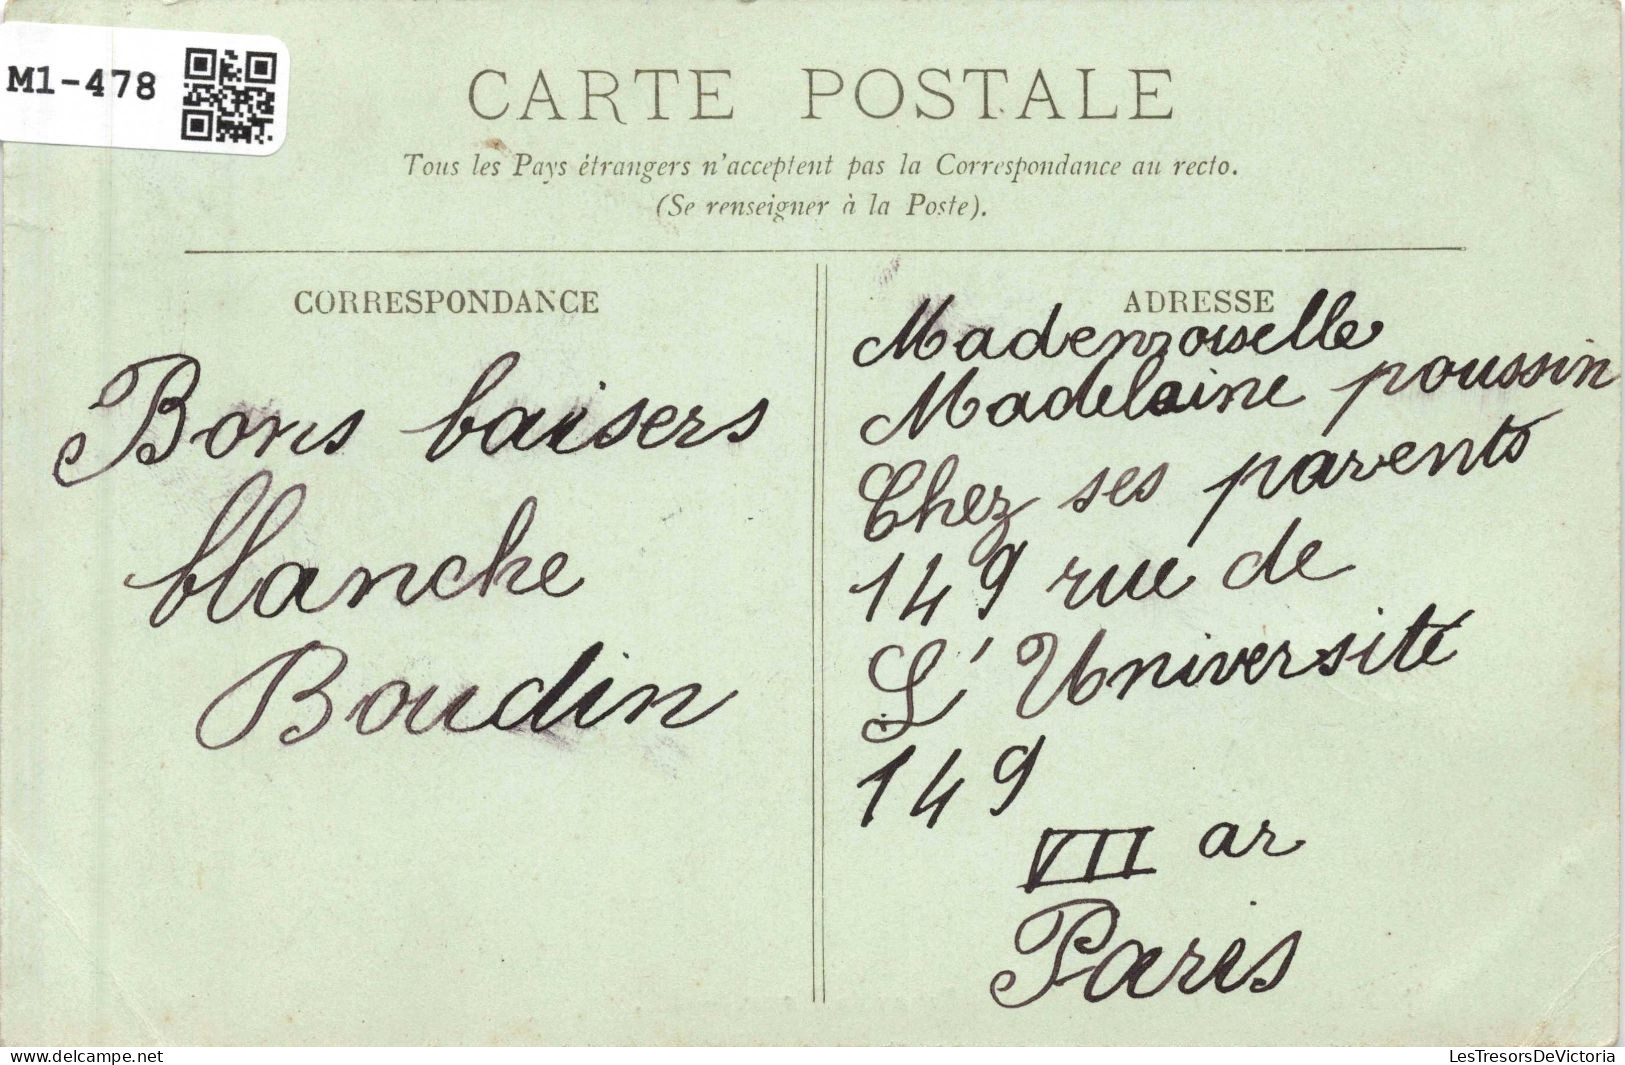 M1-478
CARTE POSTALE
Tous les Pays étrangers n'acceptent pas la Correspondance au recto.
(Se renseigner à la Poste).
CORRESPONDANCE
Bons baisers
blanche
Boudin
ADRESSE
Mademoiselle
Madelaine poussin
Chez ses parents
149 rue de
L'Université
149
VII ar
Paris
www.delcampe.net
LesTresorsDeVictoria